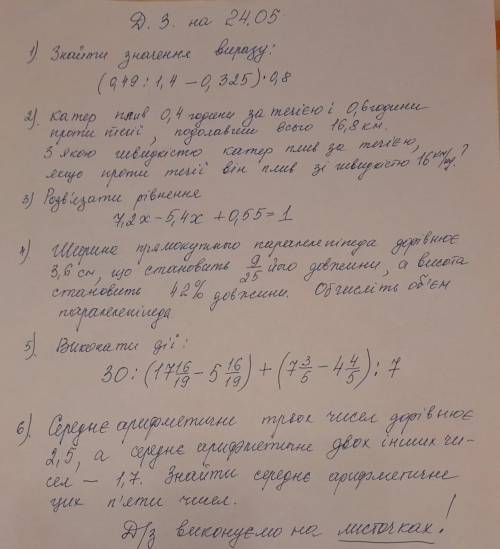 Д. З. на 24.05
1) Знайти значення виразу:
(0,49 : 1,4 – 0,325) · 0,8
2). Катер плив 0,4 години за течією і 0,6 години
проти течії, подолавши всього 16,8 км.
З якою швидкістю катер плив за течією,
якщо проти течії він плив зі швидкістю 16 км/год?
3) Розв'язати рівняння
7,2x – 5,4x + 0,55 = 1
4) Ширина прямокутного паралелепіпеда дорівнює
3,6 см, що становить 9/25 його довжини, а висота
становить 42% довжини. Обчисліть об'єм
паралелепіпеда
5) Виконати дії:
30 : (17 16/19 – 5 16/19) + (7 3/5 – 4 4/5) : 7
6) Середнє арифметичне трьох чисел дорівнює
2,5, а середнє арифметичне двох інших чи-
сел – 1,7. Знайти середнє арифметичне
цих п'яти чисел.
Д/з виконуємо на листочках!